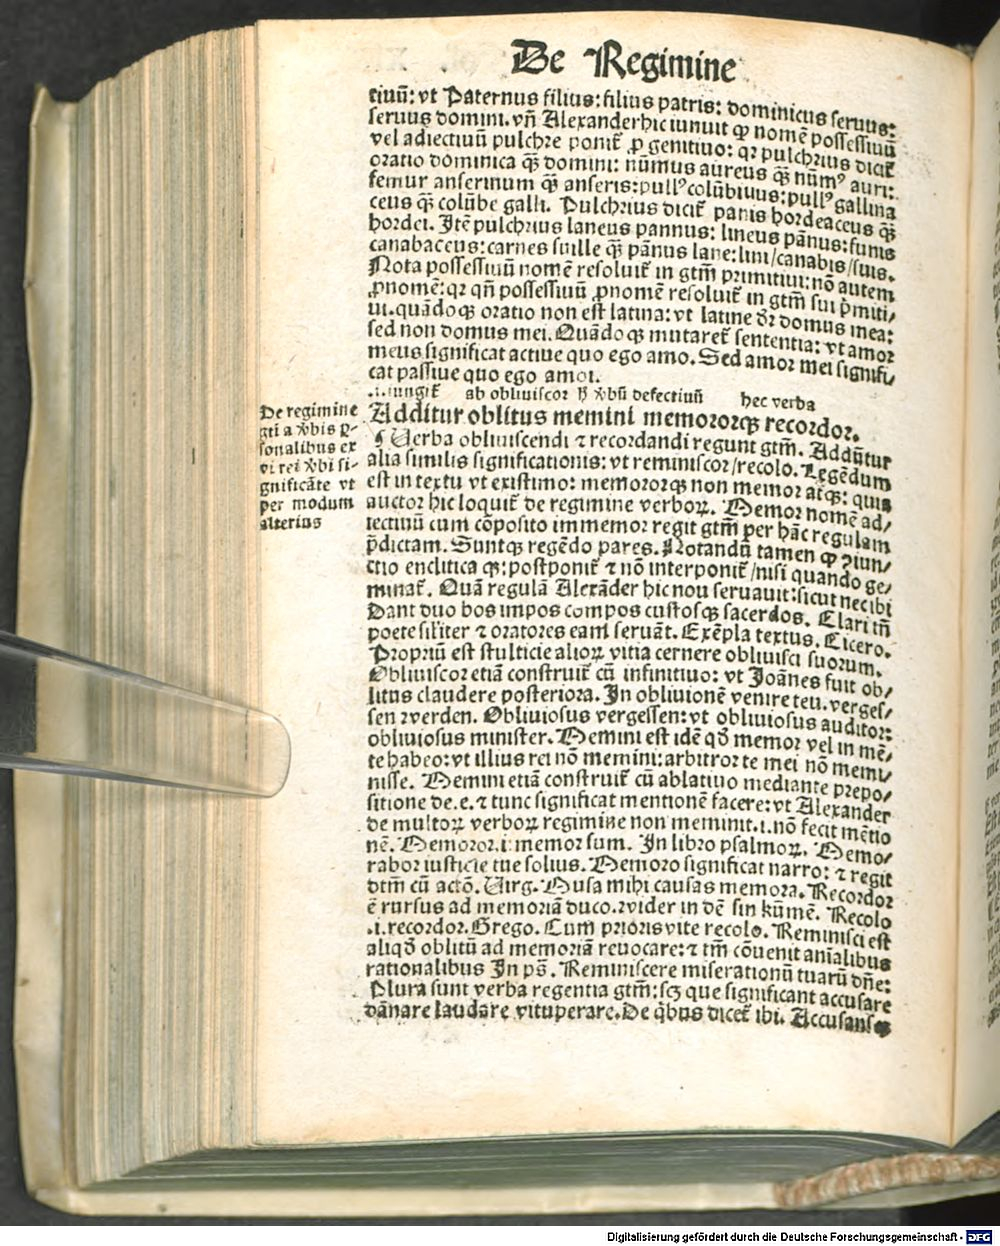 De Regimine
tiuū: vt Paternus filius: filius patris: dominicus seruus:
seruus domini. vñ Alexander hic iunuit ꝙ nomē possessiuū
vel adiectiuū pulchre ponit̄ ꝓ genitiuo: qꝛ pulchrius dicit̄
oratio dominica qꝫ domini: nūmus aureus qꝫ nūmꝰ auri:
femur anserinum qꝫ anseris: pullꝰ colūbiuus: pullꝰ gallina
ceus qꝫ colūbe galli. Pulchrius dicit̄ panis hordeaceus qꝫ
hordei. Itē pulchrius laneus pannus: lineus pānus: funis
canabaceus: carnes suille qꝫ pānus lane: lini/canabis/suis.
Nota possessiuū nomē resoluit̄ in gtm̄ primitiui: nō autem
ꝓnomē: qꝛ qñ possessiuū ꝓnomē resoluit̄ in gtm̄ sui p̄miti/
ui. quādoqꝫ oratio non est latina: vt latine dr̄ domus mea:
sed non domus mei. Quādoqꝫ mutaret̄ sententia: vt amor
meus significat actiue quo ego amo. Sed amor mei signifi/
cat passiue quo ego amoꝛ.
.i. iungit̄ ab obliuiscor hec verba
Additur oblitus memini memororqꝫ recordor.
De regimine
gti a v̄bis ꝑ-
sonalibus ex
vi rei v̄bi si-
gnificāte vt
per modum
alterius
¶ Uerba obliuiscendi ⁊ recordandi regunt gtm̄. Addūtur
alia similis significationis: vt reminiscor/recolo. Legēdum
est in textu vt existimo: memororqꝫ non memor atqꝫ: quia
auctor hic loquit̄ de regimine verboꝝ. Memor nomē ad/
iectiuū cum cōposito immemor regit gtm̄ per hāc regulam
p̄dictam. Suntqꝫ regēdo pares. Notandū tamen ꝙ ꝯiun/
ctio enclitica qꝫ: postponit̄ ⁊ nō interponit̄/nisi quando ge/
minat̄. Quā regulā Alexāder hic nou seruauit: sicut nec ibi
Dant duo bos impos compos custosqꝫ sacerdos. Clari tñ
poete sil'iter ⁊ oratores eam seruāt. Exēpla textus. Cicero.
Propriū est stulticie alioꝝ vitia cernere obliuisci suorum.
Obliuiscor etiā construit̄ cū infinitiuo: vt Joānes fuit ob/
litus claudere posteriora. In obliuionē venire teu. verges/
sen ꝛverden. Obliuiosus vergessen: vt obliuiosus auditor:
obliuiosus minister. Memini est idē qd̄ memor vel in mē/
te habeo: vt illius rei nō memini: arbitror te mei nō memi/
nisse. Memini etiā construit̄ cū ablatiuo mediante prepo/
sitione de. e. ⁊ tunc significat mentionē facere: vt Alexander
de multoꝝ verboꝝ regimine non meminit. i. nō fecit mētio
nē. Memoror. i: memor sum. In libro psalmoꝝ. Memo/
rabor iusticie tue solius. Memoro significat narro: ⁊ regit
dtm̄ cū actō. Uirg. Musa mihi causas memora. Recordor
ē rursus ad memoriā duco. ꝛvider in dē sin kūmē. Recolo
.i. recordor. Grego. Cum prioris vite recolo. Reminisci est
aliqd̄ oblitū ad memoriā reuocare: ⁊ tm̄ cōuenit anīalibus
rationalibus In ps̄. Reminiscere miserationū tuarū dñe:
Plura sunt verba regentia gtm̄: scꝫ que significant accusare
dānare laudare vituperare. De qbus dicet̄ ibi. Accusans
Digitalisierung gefördert durch die Deutsche Forschungsgemeinschaft - DFG